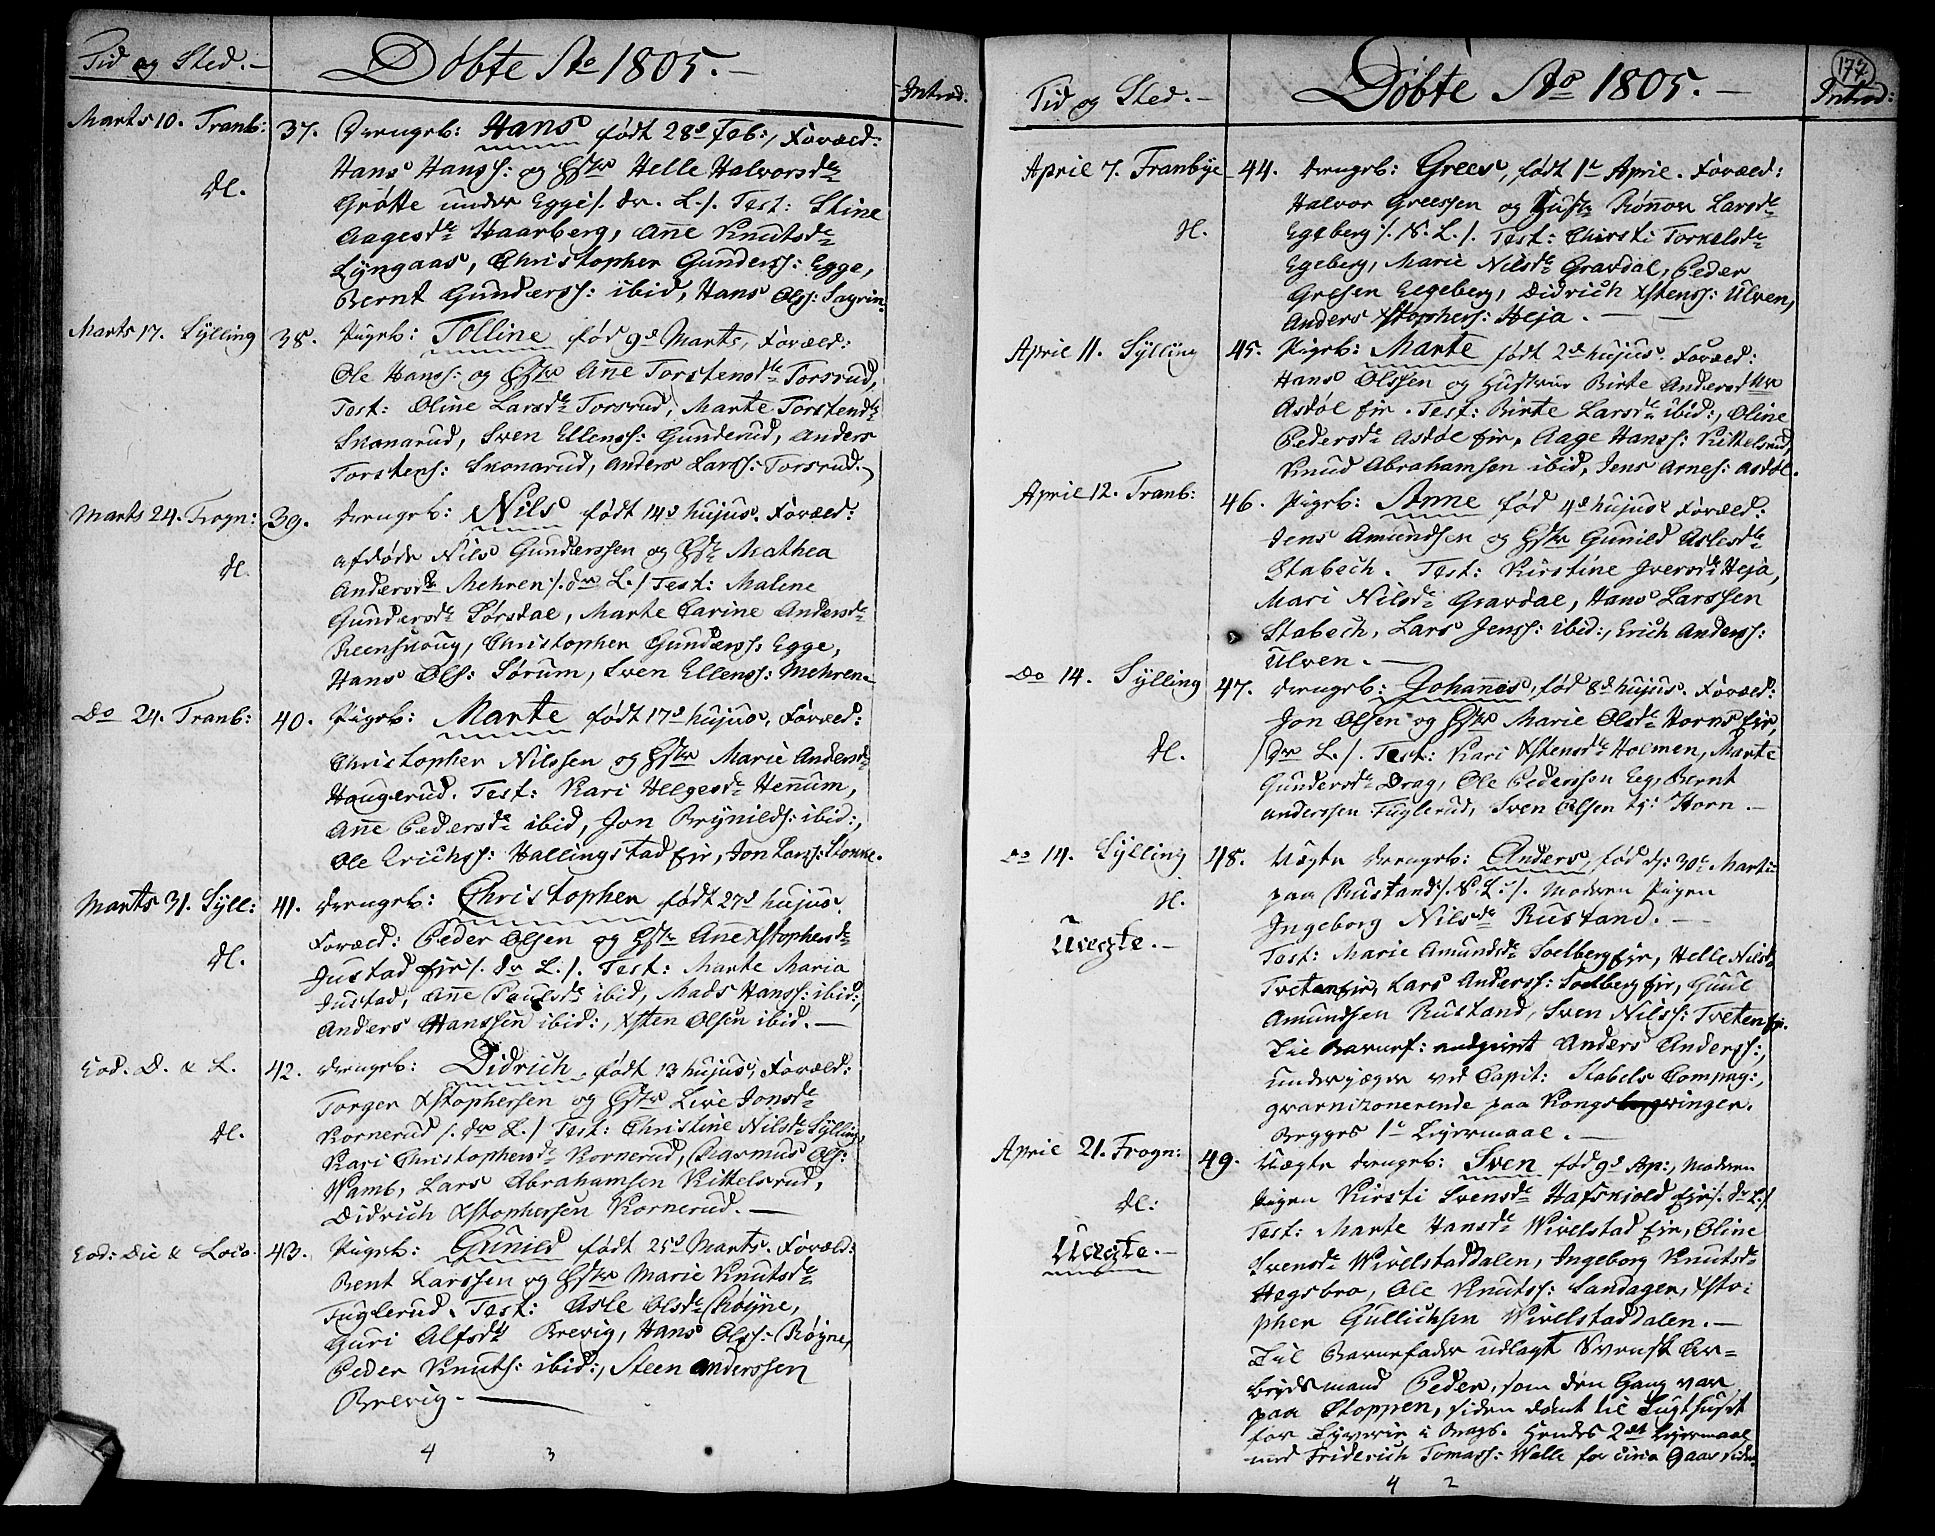 Tid og Sted.
Døbte Ao 1805.
Introd.
Marts 10. Tranb:
37. Drengeb: Hans født 28d Feb:, Foræld:
Hans Hanss: og Hstr Helle Halvorsdtr
dl.
Grøtte under Egge /. dr. L./. Test: Stine
Aagesdr Haarberg, Anne Knutsdr
Lyngaas, Christopher Gunderss: Egge,
Bernt Gunderss: ibid, Hans Olss: Sagrin
Marts 17. Sylling
38. Pigeb: Tolline fød 9d Marts, Foræld:
Ole Hanss: og Hstr Ane Torstensdtr Torsrud,
Test: Oline Larsdr Torsrud, Marte Torstensdr
Skonarud, Sven Ellenss: Gunderud, Anders
Torstens: Skonarud, Anders Larss: Torsrud.
Marts 24. Frogn:
39. Drengeb: Nils født 14d hujus. Foræld:
afdøde Nils Gunderssen og Hstr Mathea
dl.
Andersdr Mehren /. dr L./ Test: Malene
Gundersdr Sørsdal, Marte Carine Andersdr
Reenskoug, Christopher Gunderss: Egge,
Hans Ols: Sørum, Sven Ellenss: Mehren.
Do 24. Tranb:
40. Pigeb: Marte født 17d hujus, Foræld:
Christopher Nilssen og Hstr Marie Andersdr
Haugerud. Test: Kari Helgesdr Henum,
Anne Pedersdr ibid, Jon Brynilds: ibid:,
Ole Erichss: Hallingstad eje, Jon Larss: Stokke.
Marts 31. Syll:
41. Drengeb: Christopher født 27d hujus.
Foræld: Peder Olsen og Hstr Ane Xstophersdr
dl.
Justad eje /. dr L./. Test: Marte Maria
Justad, Anne Paulsdr ibid, Mads Hanss: ibid:,
Anders Hanssen ibid:, Xsten Olsen ibid.
Eod: D. & L.
42. Drengeb: Didrich født 13 hujus, Foræld:
Torger Xstophersen og Hstr Live Jonsdr
dl.
Kornerud /. dr L./ Test: Christine Nilsdr Sylling,
Kari Christophersdr Kornerud, Rasmus Ols:
Wamb, Lars Abrahamsen Kittelsrud,
Didrich Xstophersen Kornerud.
Eod: Die & Loco.
43. Pigeb: Gunild født 25d Marts. Foræld:
Bent Larssen og Hstr Marie Knutsdr
Fuglerud. Test: Asle Olsdr Røyne,
Guri Alfsdr Brevig, Hans Olss: Røyne,
Peder Knuts: ibid:, Steen Anderssen
Brevig.
4 3
177
Tid og Sted.
Døbte Ao 1805.
Introd:
April 7. Tranbye
44. Drengeb: Grees, født 1e April. Foræld:
Halvor Greessen og Hustr Rønnov Larsdr
dl.
Egeberg /. N. L./. Test: Chirsti Torkelsdr
Egeberg, Marie Nilsdr Gravdal, Peder
Gresen Eegeberg, Didrich Xstenss: Ulven,
Anders Xstophers: Heja.
April 11. Sylling
45. Pigeb: Marte født 2d hujus. Foræld:
Hans Olssen og Hustrue Birte Andersdtr
Asdøl eje. Test: Birte Larsdr ibid:, Oline
Pedersdr Asdøl eje, Aage Hanss: Kittelsrud,
Knud Abrahamsen ibid, Jens Arnes: Asdøl.
April 12. Tranb:
46. Pigeb: Anne fød 4d hujus Foræld:
Jens Amundsen og Hstr Gunild Aslesdr
Stabech. Test: Kirstine Iversdr Heja,
Mari Nilsdr Gravdal, Hans Larssen
Stabech, Lars Jenss: ibid:, Erich Anderss:
Ulven.
Do 14. Sylling
47. Drengeb: Johannes, fød 8d hujus. Foræld:
Jon Olsen og Hstr Marie Olsdr Horns eje,
dl.
/dr L./. Test: Kari Xstensdr Holmen, Marte
Gundersdr Drag, Ole Pederssen Eeg, Bernt
Anderssen Fuglerud, Sven Olsen tj: Horn.
Do 14. Sylling
48. Uægte Drengeb: Anders, fød d: 30e Marti
dl.
paa Rustand /. N. L./. Moderen Pigen
Uægte.
Ingeborg Nilsdr Rustand.
Test: Marie Amundsdr Soelberg eje, Helle Nilsdr
Tveten eje, Lars Anderss: Soelberg eje, Guul
Amundsen Rustand, Sven Nilss: Tveten eje.
Til Barnef: andgivet Anders Anderss:,
Underjæger ved Capit: Stabels Compag:,
gvarnizonerende paa Kongsvinger.
Begges 1e Lejermaal.
April 21. Frogn:
49. Uægte Drengeb: Sven fød 9d Ap:, Moderen
Pigen Kirsti Svensdr Hafskjold eje /. dr L./
dl:
Test: Marte Hansdr Wivelstad eje, Oline
Uægte.
Svensdr Wivelstaddalen, Ingeborg Knutsdr
Hegsbro, Ole Knutss: Landagen, Xsto-
pher Gullichsen Wivelstaddalen.
Til Barnefader udlagt Svensk Ar-
bejdsmand Peder, som den Gang var
paa Stoppen, siden dømt til Tugthuset
for Tyverie i Brags. Hendes 2det Lejermaal
med Friderich Tomass: Walle for circa 9 aar siden.
4 2